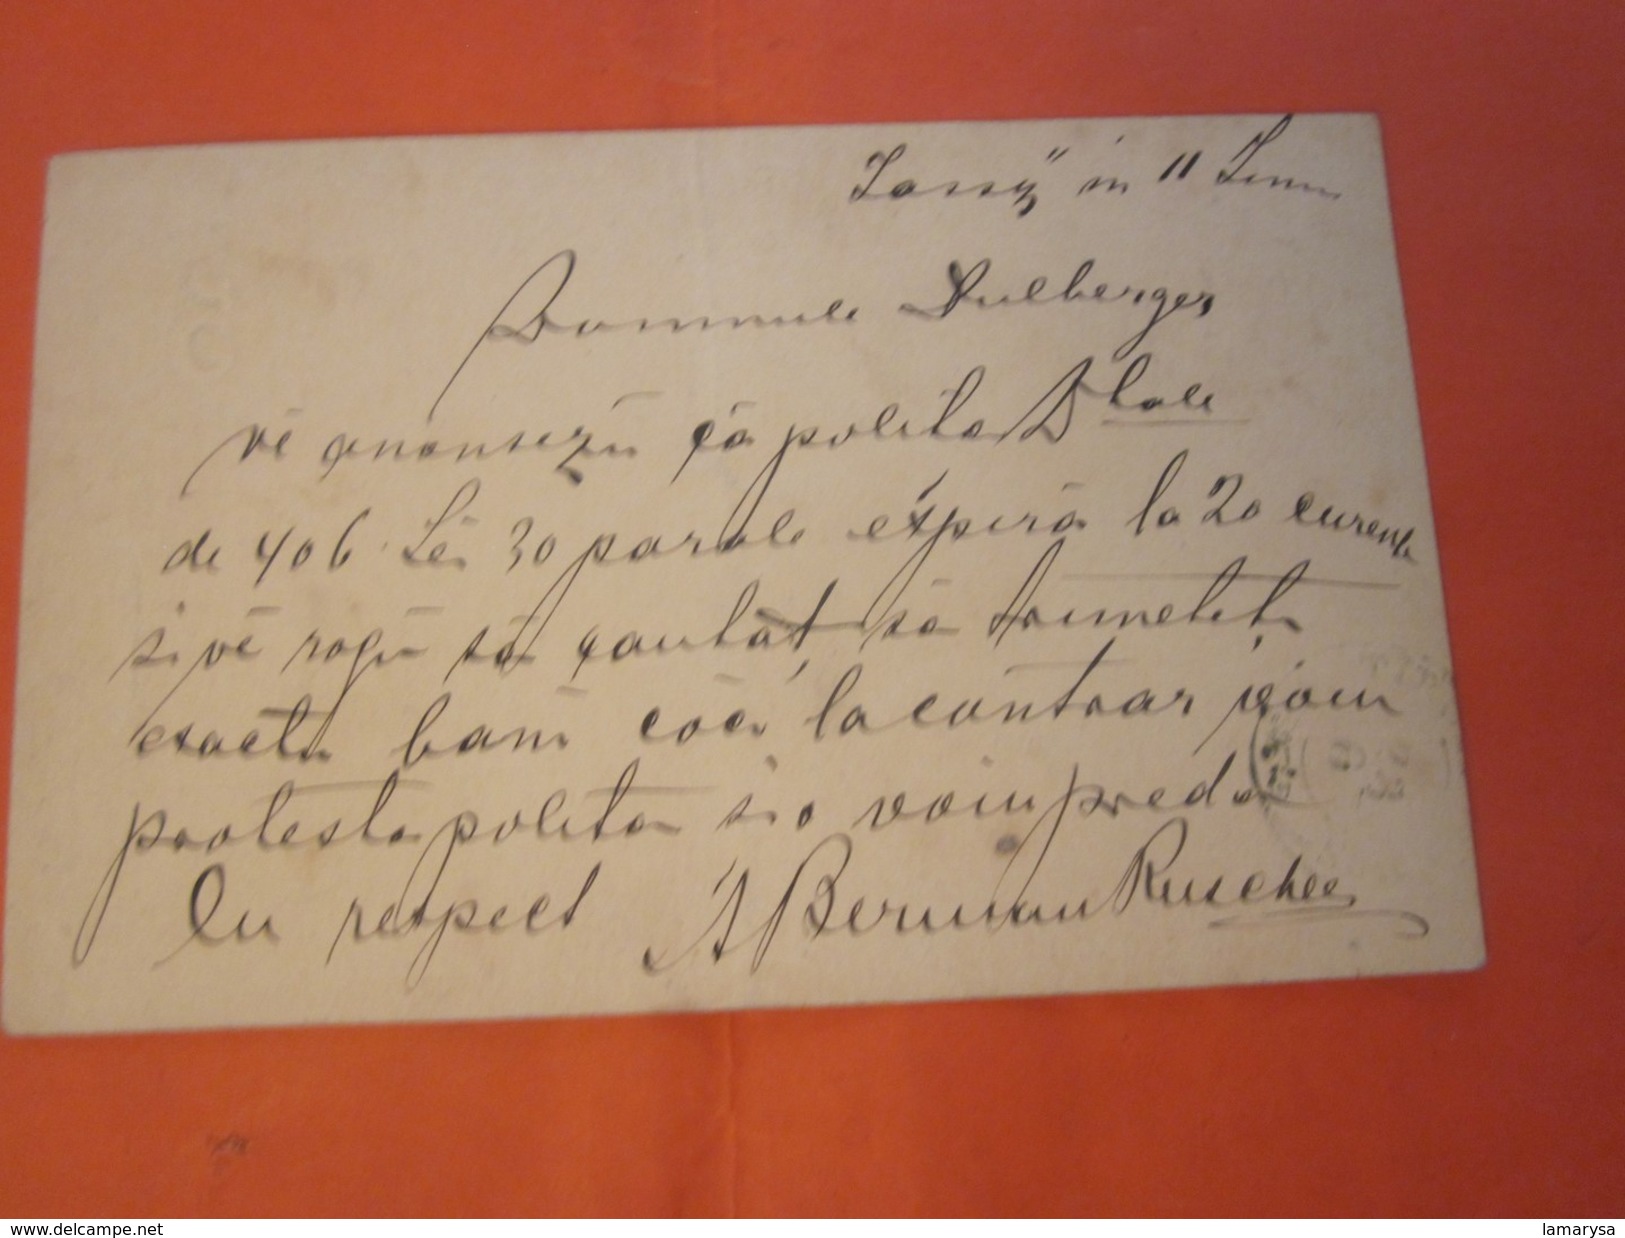 Iassÿ in 11 Iunu
Domnule Dulberger
vĕ ananseză că polita D tale
de 406 Lei 30 parale expiră la 20 curent
si vĕ rogŭ să cautăt să trimeteti
exactu banĭ căci la contrar voiu
protesta polita si o voiu preda
Cu respect A Berman Ruschee
delcampe.net
lamarysa